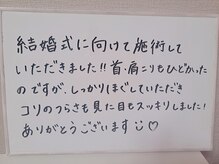 結婚式に向けて施術して
いただきました!!首・肩こりもひどかった
のですが、しっかりほぐしていただき
コリのつらさも見た目もスッキリしました!
ありがとうございます☺♡